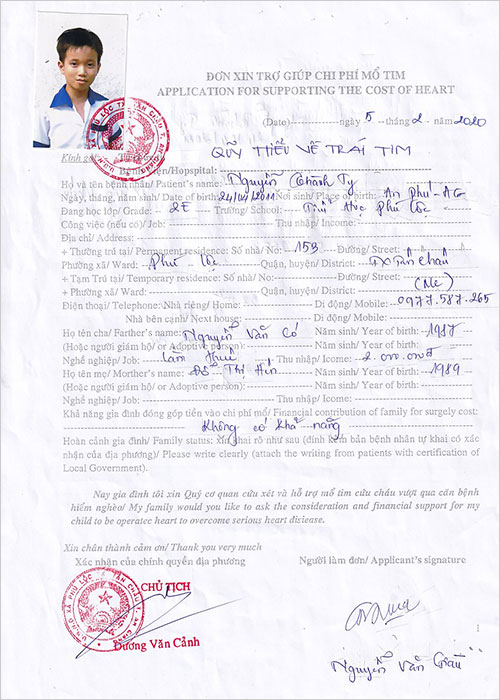 ĐƠN XIN TRỢ GIÚP CHI PHÍ MỔ TIM
APPLICATION FOR SUPPORTING THE COST OF HEART
(Date)---------------ngày 5 --tháng 2 - năm 2020
QUỸ THIỂU VỀ TRÁI TIM
Kính gởi
Bệnh viện/Hopspital:
Họ và tên bệnh nhân/ Patient's name: Nguyễn Chành Ty
Ngày, tháng, năm sinh/ Date of birth: 24/01/2011 Nơi sinh/ Place of birth: An Phú - AG
Đang học lớp/ Grade: 2E Trường/ School: Tiểu học Phú Lộc
Công việc (nếu có)/ Job: Thu nhập/ Income:
Địa chỉ/ Address:
+ Thường trú tại/ Permanent residence: Số nhà/ No: 153 Đường/ Street:
+ Phường xã/ Ward: Phú Lộc Quận, huyện/ District: TX Tân Châu
+ Tạm Trú tại/ Temporary residence: Số nhà/ No: Đường/ Street:
+ Phường xã/ Ward: Quận, huyện/ District: (Mẹ)
Điện thoại/ Telephone: Nhà riêng/ Home: Di động/ Mobile: 0977.587.265
Nhà bên cạnh/ Next house: Di động/ Mobile:
Họ tên cha/ Farther's name: Nguyễn Văn Có Năm sinh/ Year of birth: 1987
(Hoặc người giám hộ/ or Adoptive person): Năm sinh/ Year of birth:
Nghề nghiệp/ Job: Làm thuê Thu nhập/ Icome: 2.000.000đ
Họ tên mẹ/ Morther's name: Đỗ Thị Hín Năm sinh/ Year of birth: 1989
(Hoặc người giám hộ/ or Adoptive person): Năm sinh/ Year of birth:
Nghề nghiệp/ Job: Thu nhập/ Income:
Khả năng gia đình đóng góp tiền vào chi phí mổ/ Financial contribution of family for surgely cost:
Không có khả năng
Hoàn cảnh gia đình/ Family status: xin khai rõ như sau (đính kèm bản bệnh nhân tự khai có xác
nhận của địa phương)/ Please write clearly (attach the writing from patients with certification of
Local Government).
Nay gia đình tôi xin Quý cơ quan cứu xét và hỗ trợ mổ tim cứu cháu vượt qua căn bệnh
hiểm nghèo/ My family would you like to ask the consideration and financial support for my
child to be operatec heart to overcome serious heart disiease.
Xin chân thành cảm ơn/ Thank you very much
Xác nhận của chính quyền địa phương
Người làm đơn/ Applicant's signature
CHỦ TỊCH
Dương Văn Cảnh
Nguyễn Văn